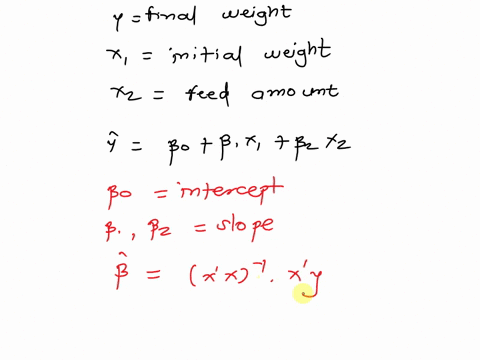 y = final weight
x₁ = initial weight
x₂ = feed amount
ŷ = β0 + β₁ x₁ + β₂ x₂
β0 = intercept
β₁, β₂ = slope
β̂ = (x'x)⁻¹. x'y